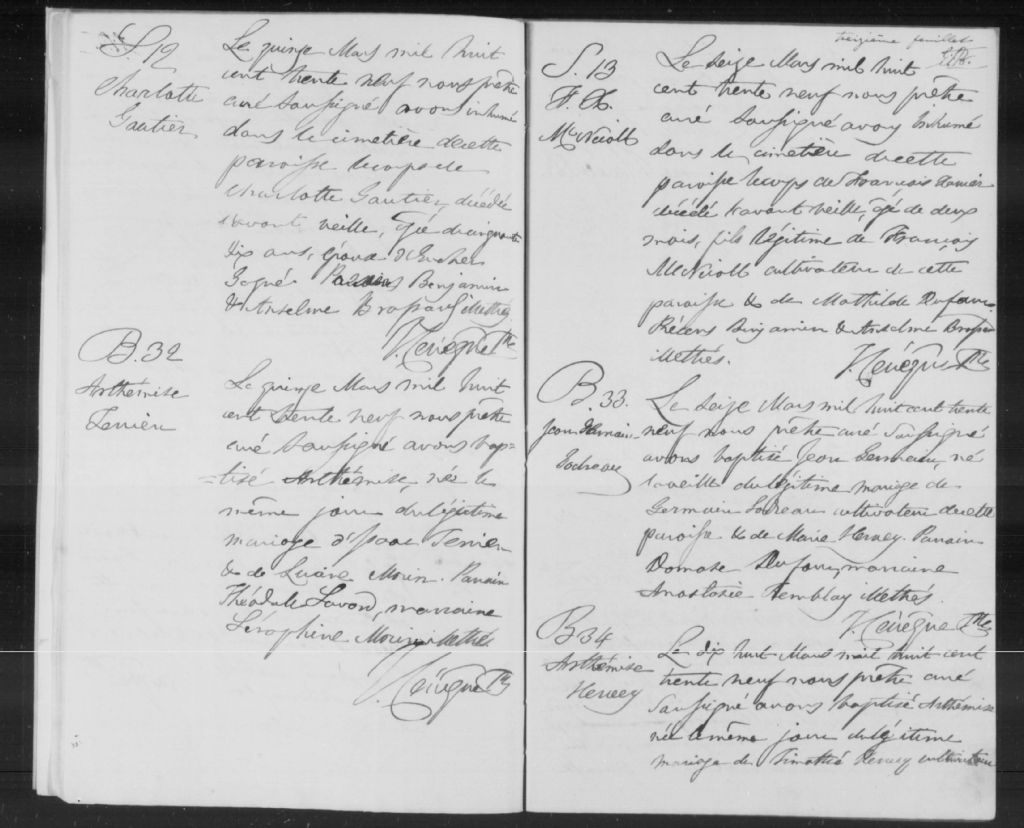 S. 12
Charlotte
Gautier
Le quinze Mars mil huit
cent trente neuf nous prêtre
curé soussigné avons inhumé
dans le cimetière de cette
paroisse le corps de
Charlotte Gautier, décédée
l'avant veille, âgée de cinquante
dix ans, épouse
Gagné Benjamin
& Anselme
B. 32
Arthémise
Terrien
Le quinze Mars mil huit
cent trente neuf nous prêtre
curé soussigné avons bap=
=tisé Arthémise, née le
même jour du légitime
mariage d'Isaac Terrien
& de Morin. Parrain
Théodule Savard, marraine
Séraphine Morin
treizième feuillet
S. 13
F. X.
McNicoll
Le seize Mars mil huit
cent trente neuf nous prêtre
curé soussigné avons inhumé
dans le cimetière de cette
paroisse le corps de François Xavier
décédé l'avant veille, âgé de deux
mois, fils légitime de François
McNicoll cultivateur de cette
paroisse & de Mathilde Dufour.
Benjamin & Anselme
B. 33.
Jean Germain
Le seize Mars mil huit cent trente
neuf nous prêtre curé soussigné
avons baptisé Jean Germain, né
la veille du légitime mariage de
Germain cultivateur de cette
paroisse & de Marie Hervey. Parrain
Damase Dufour, marraine
Anastasie Tremblay
B 34
Arthémise
Hervey
Le dix huit Mars mil huit cent
trente neuf nous prêtre curé
soussigné avons baptisé Arthémise
née le même jour du légitime
mariage de Timothé Hervey cultivateur